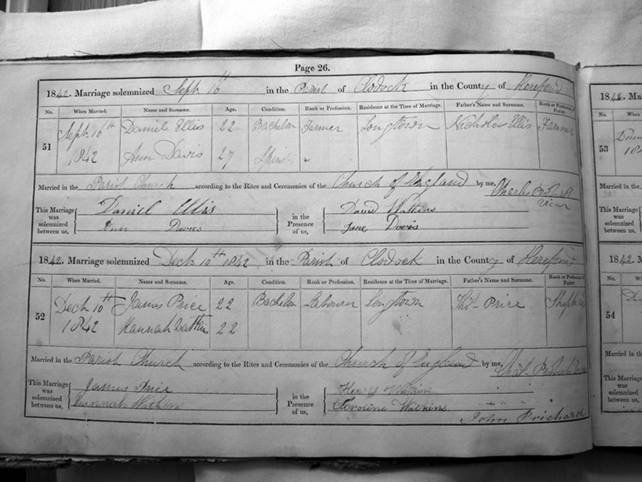 Page 26.
1842. Marriage solemnized Sept 16th in the Parish of Clodock in the County of Hereford
No. When Married. Name and Surname. Age. Condition. Rank or Profession. Residence at the Time of Marriage. Father's Name and Surname. Rank or Profession of Father.
51 Sept 16th 1842 Daniel Ellis 22 Bachelor Farmer Longtown Nicholas Ellis Farmer
Ann Davis 27 "
Married in the Parish Church according to the Rites and Ceremonies of the Church of England by me,
This Marriage was solemnized between us, Daniel Ellis in the Presence of us, David Watkins
Ann Davies Jane Davis
1842. Marriage solemnized Decb 10th 1842 in the Parish of Clodock in the County of Hereford
No. When Married. Name and Surname. Age. Condition. Rank or Profession. Residence at the Time of Marriage. Father's Name and Surname. Rank or Profession of Father.
52 Decb 10th 1842 James Price 22 Bachelor Labourer Longtown Thos Price
Hannah Watkin 22
Married in the Parish Church according to the Rites and Ceremonies of the Church of England by me,
This Marriage was solemnized between us, James Price in the Presence of us, Henry Watkins
Hannah Watkins Watkins
John Prichard
53
54